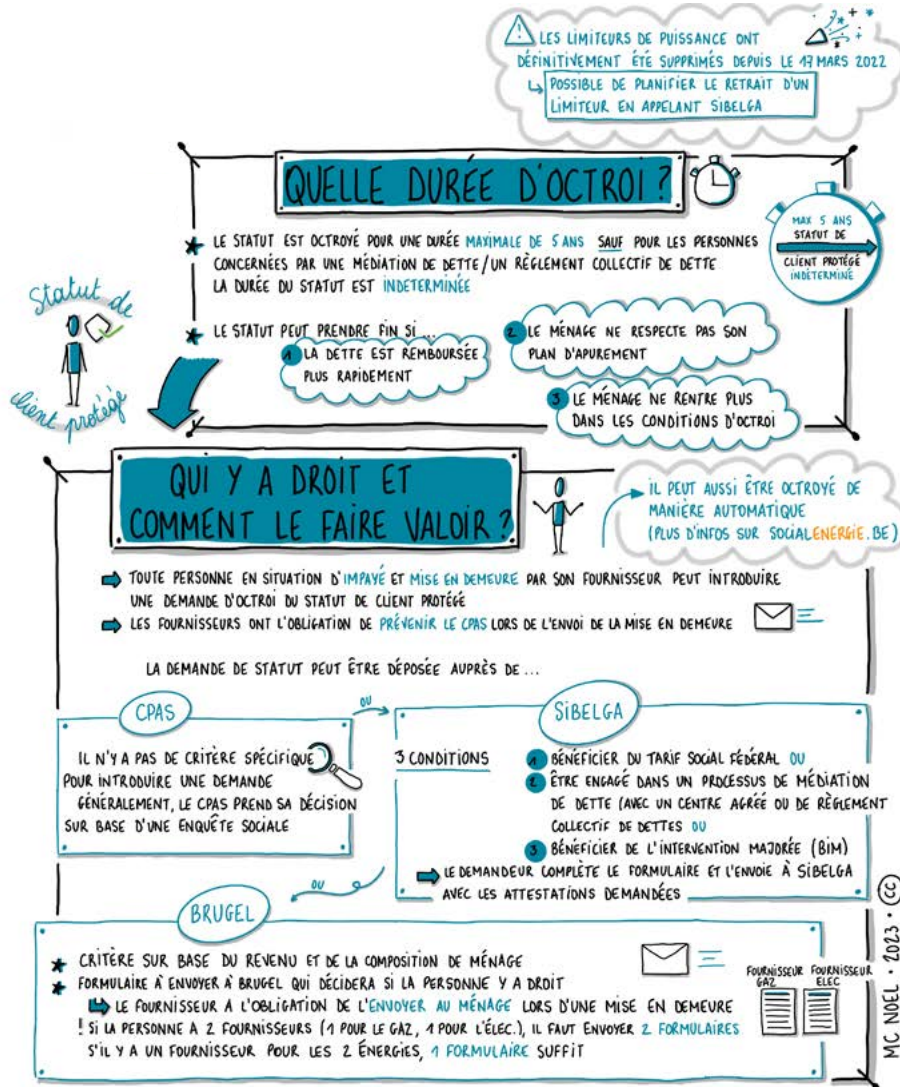 LES LIMITEURS DE PUISSANCE ONT
DÉFINITIVEMENT ÉTÉ SUPPRIMÉS DEPUIS LE 17 MARS 2022
POSSIBLE DE PLANIFIER LE RETRAIT D'UN
LIMITEUR EN APPELANT SIBELGA
QUELLE DURÉE D'OCTROI ?
LE STATUT EST OCTROYÉ POUR UNE DURÉE MAXIMALE DE 5 ANS SAUF POUR LES PERSONNES
CONCERNÉES PAR UNE MÉDIATION DE DETTE/UN RÈGLEMENT COLLECTIF DE DETTE
LA DURÉE DU STATUT EST INDETERMINÉE
MAX 5 ANS
STATUT DE
CLIENT PROTÉGÉ
INDÉTERMINÉ
Statut de
client protégé
LE STATUT PEUT PRENDRE FIN SI ...
1 LA DETTE EST REMBOURSÉE
PLUS RAPIDEMENT
2 LE MÉNAGE NE RESPECTE PAS SON
PLAN D'APUREMENT
3 LE MÉNAGE NE RENTRE PLUS
DANS LES CONDITIONS D'OCTROI
QUI Y A DROIT ET
COMMENT LE FAIRE VALOIR ?
IL PEUT AUSSI ÊTRE OCTROYÉ DE
MANIÈRE AUTOMATIQUE
(PLUS D'INFOS SUR SOCIALENERGIE.BE)
TOUTE PERSONNE EN SITUATION D'IMPAYÉ ET MISE EN DEMEURE PAR SON FOURNISSEUR PEUT INTRODUIRE
UNE DEMANDE D'OCTROI DU STATUT DE CLIENT PROTÉGÉ
LES FOURNISSEURS ONT L'OBLIGATION DE PRÉVENIR LE CPAS LORS DE L'ENVOI DE LA MISE EN DEMEURE
LA DEMANDE DE STATUT PEUT ÊTRE DÉPOSÉE AUPRÈS DE ...
CPAS
IL N'Y A PAS DE CRITÈRE SPÉCIFIQUE
POUR INTRODUIRE UNE DEMANDE
GÉNÉRALEMENT, LE CPAS PREND SA DÉCISION
SUR BASE D'UNE ENQUÊTE SOCIALE
OU
SIBELGA
3 CONDITIONS
1 BÉNÉFICIER DU TARIF SOCIAL FÉDÉRAL OU
2 ÊTRE ENGAGÉ DANS UN PROCESSUS DE MÉDIATION
DE DETTE (AVEC UN CENTRE AGRÉÉ OU DE RÈGLEMENT
COLLECTIF DE DETTES OU
3 BÉNÉFICIER DE L'INTERVENTION MAJORÉE (BIM)
LE DEMANDEUR COMPLÈTE LE FORMULAIRE ET L'ENVOIE À SIBELGA
AVEC LES ATTESTATIONS DEMANDÉES
OU
BRUGEL
CRITÈRE SUR BASE DU REVENU ET DE LA COMPOSITION DE MÉNAGE
FORMULAIRE À ENVOYER À BRUGEL QUI DÉCIDERA SI LA PERSONNE Y A DROIT
LE FOURNISSEUR A L'OBLIGATION DE L'ENVOYER AU MÉNAGE LORS D'UNE MISE EN DEMEURE
! SI LA PERSONNE A 2 FOURNISSEURS (1 POUR LE GAZ, 1 POUR L'ÉLEC.), IL FAUT ENVOYER 2 FORMULAIRES
S'IL Y A UN FOURNISSEUR POUR LES 2 ÉNERGIES, 1 FORMULAIRE SUFFIT
FOURNISSEUR GAZ
FOURNISSEUR ELEC
MC NOEL • 2023 • CC